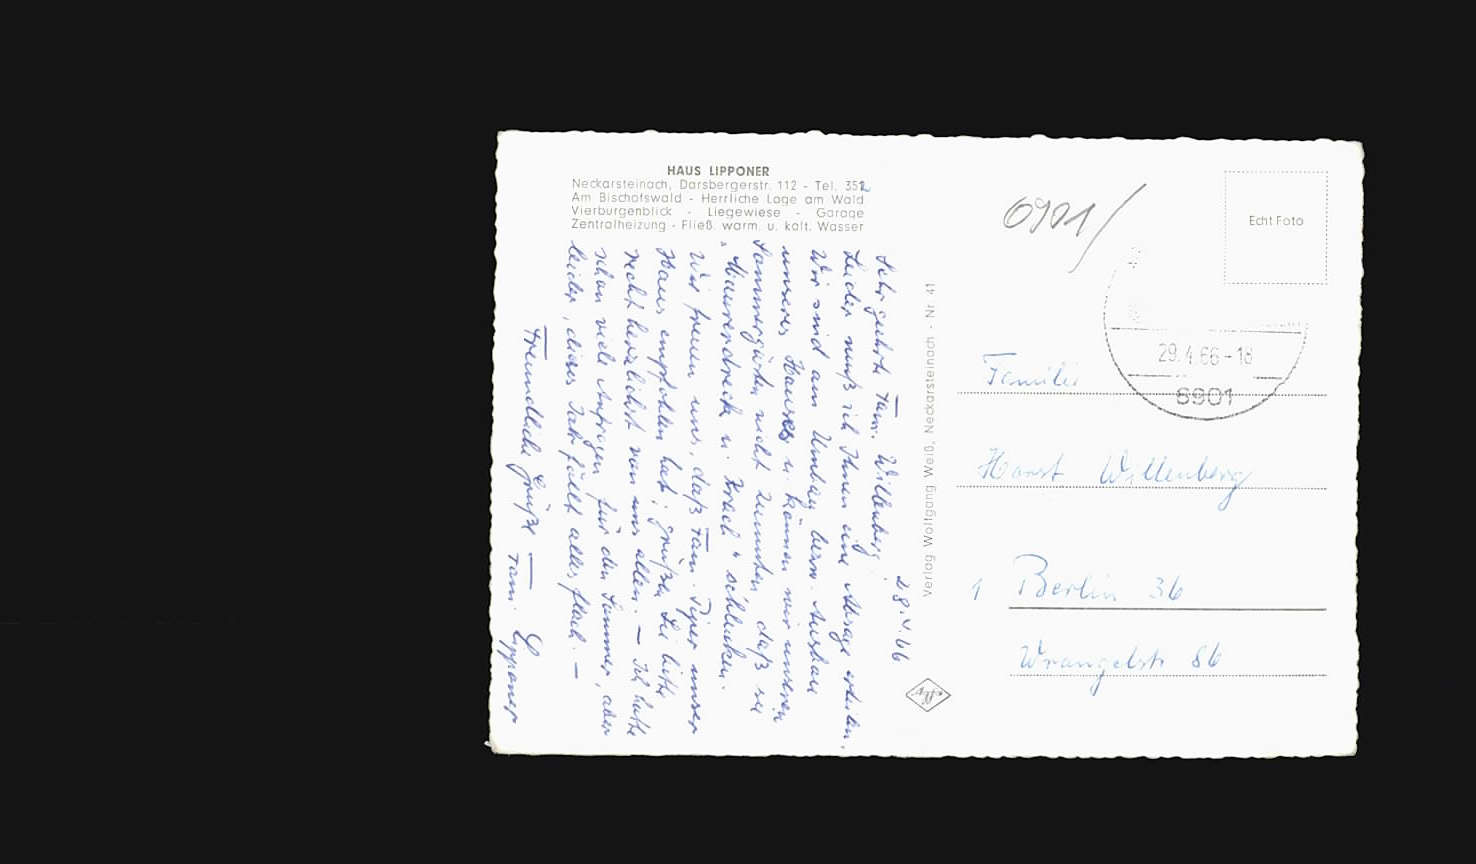 HAUS LIPPONER
Neckarsteinach, Darsbergerstr. 112 - Tel. 352
Am Bischofswald - Herrliche Lage am Wald
Vierburgenblick - Liegewiese - Garage
Zentralheizung - Fließ. warm. u. kalt. Wasser
28.4.66
Sehr geehrte Fam. Willenberg,
Leider muß ich Ihnen eine Absage erteilen.
Wir sind am Umbau bezw. Ausbau
unseres Hauses u. können wir unseren
Sommergästen nicht zumuten, daß sie
"Maurerdreck u. Krach" schlucken.
Wir freuen uns, daß Fam. Piper unser
Haus empfohlen hat; grüßen Sie bitte
recht herzlichst von uns allen. — Ich hatte
schon viele Anfragen für den Sommer, aber
leider, dieses Jahr fällt alles flach. —
Freundliche Grüße — Fam. Lipponer
Verlag Wolfgang Weiß, Neckarsteinach - Nr. 41
Agfa
6901/
Echt Foto
29.4.66-18
6901
Familie
Horst Willenberg
1 Berlin 36
Wrangelstr 86